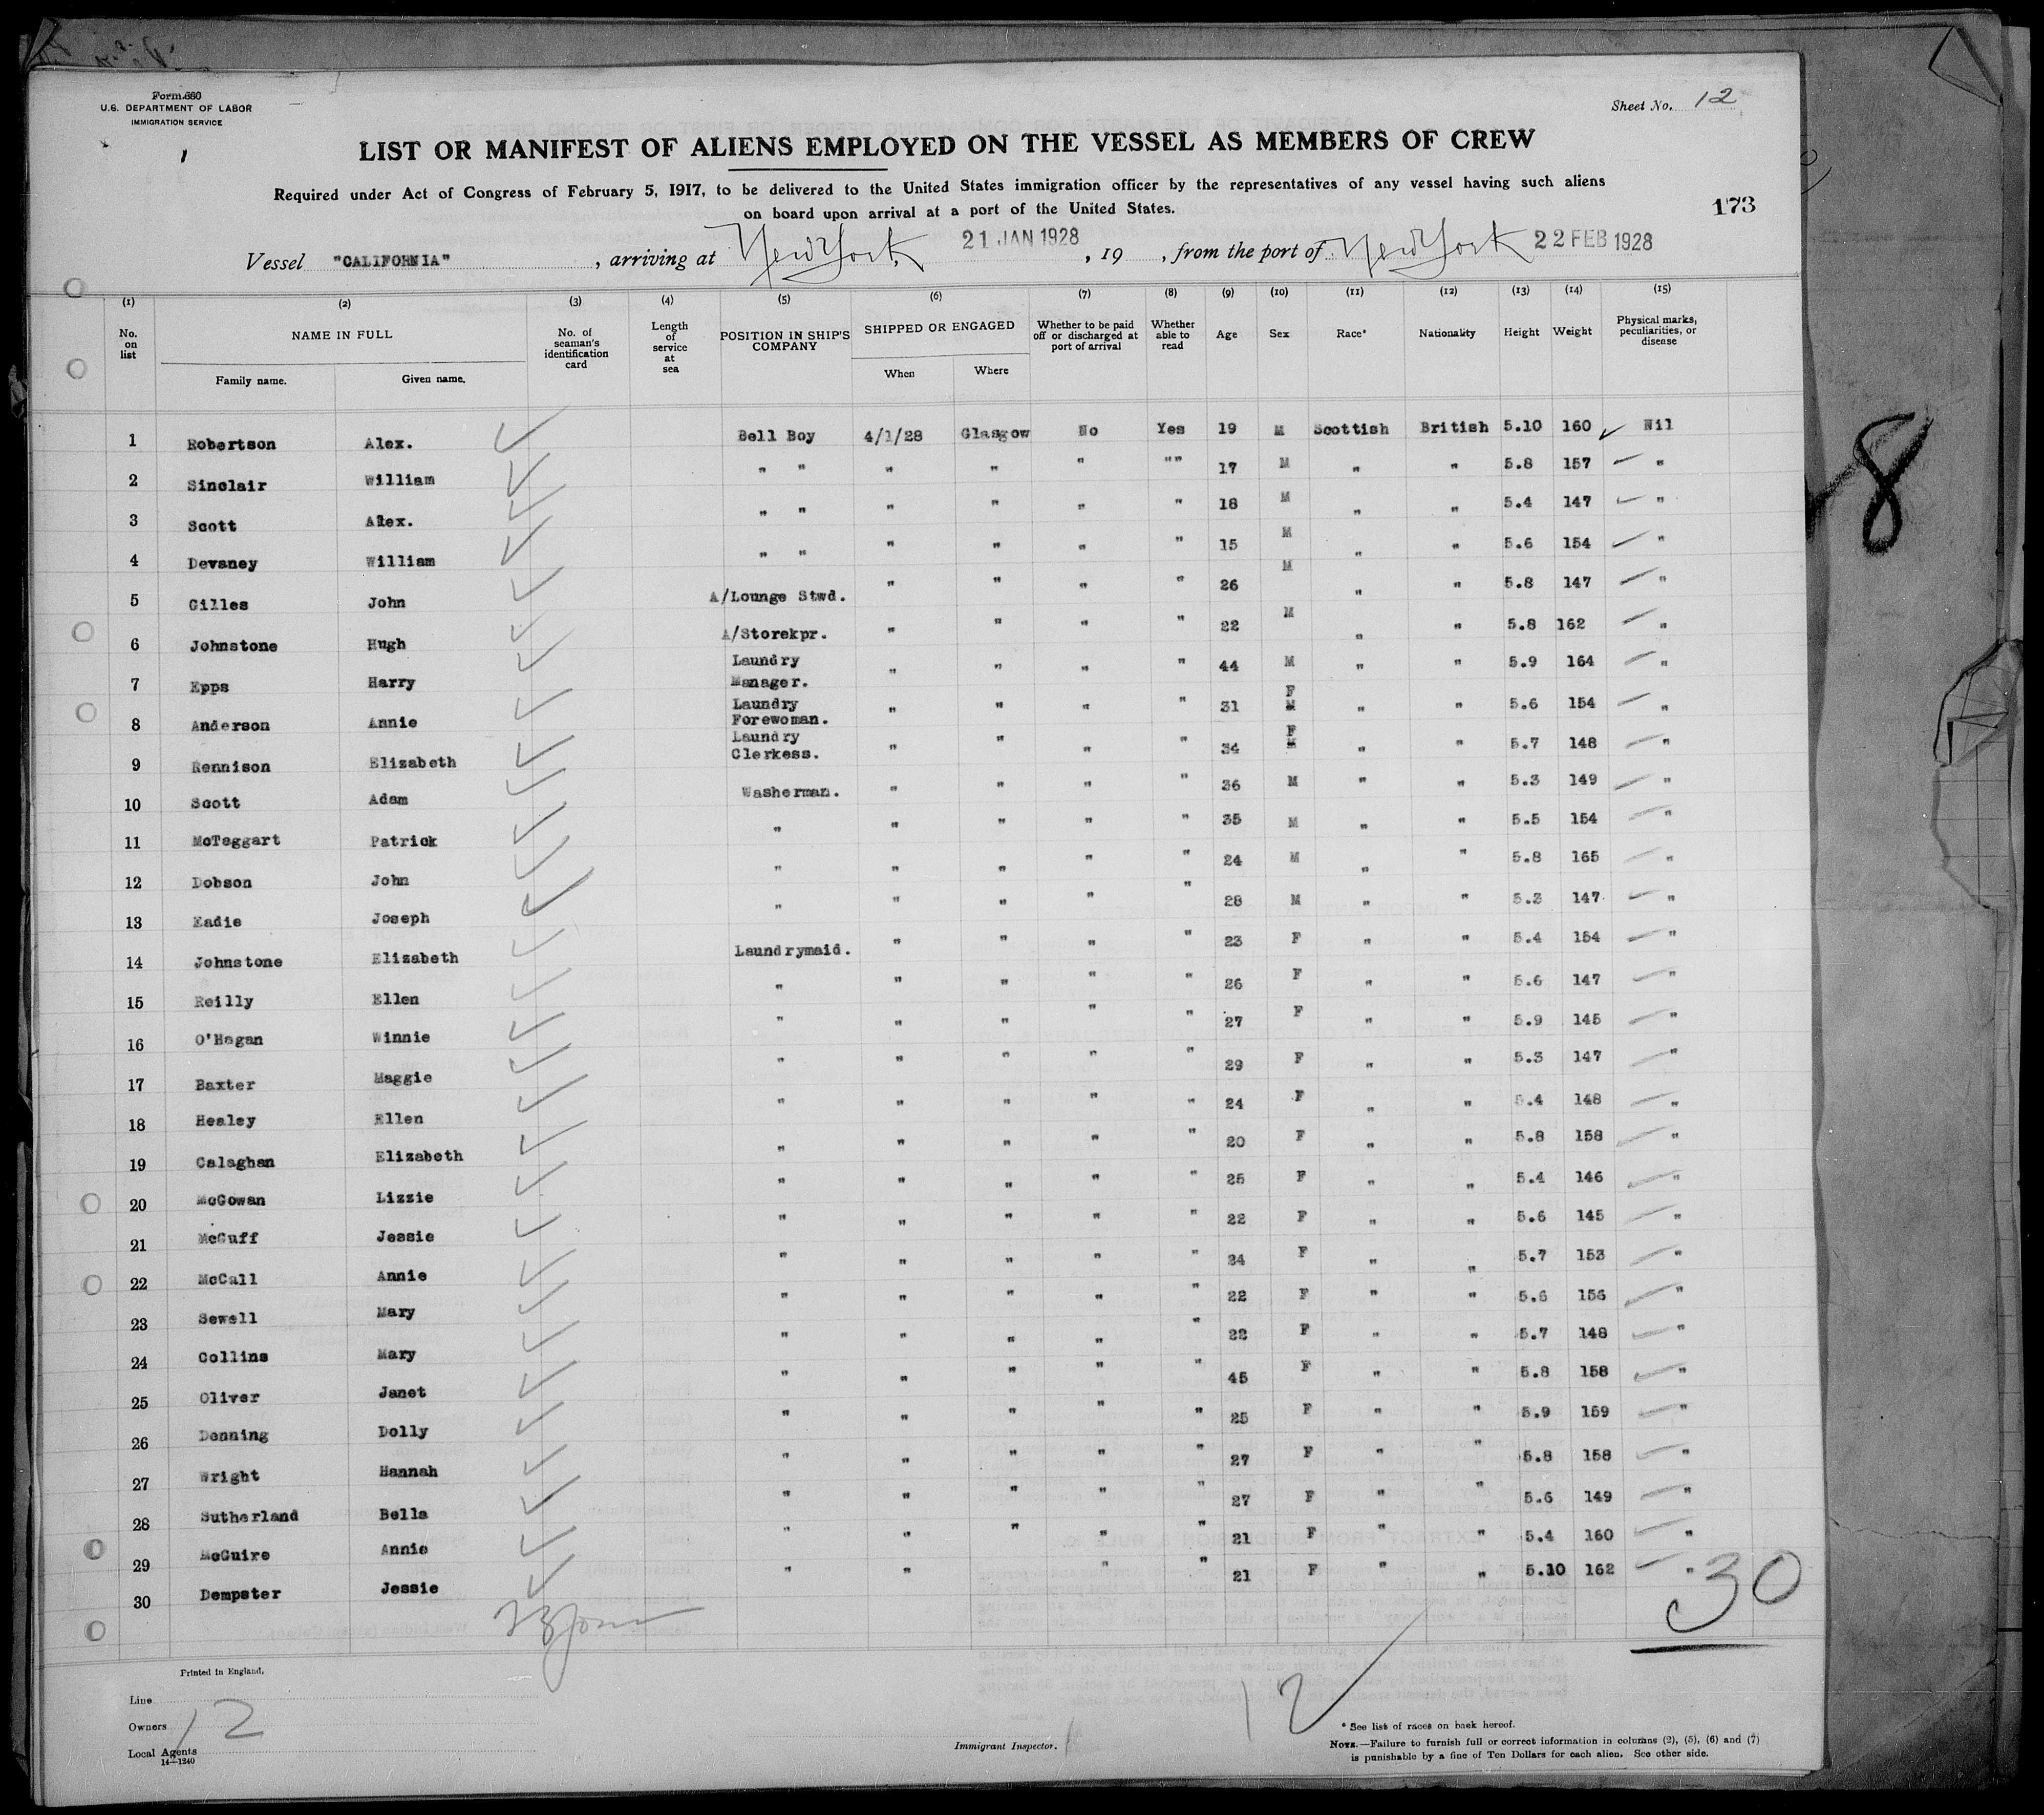 Form 680
U.S. DEPARTMENT OF LABOR
IMMIGRATION SERVICE
Sheet No. 12
LIST OR MANIFEST OF ALIENS EMPLOYED ON THE VESSEL AS MEMBERS OF CREW
Required under Act of Congress of February 5, 1917, to be delivered to the United States immigration officer by the representatives of any vessel having such aliens
on board upon arrival at a port of the United States.
173
Vessel "CALIFORNIA", arriving at New York 21 JAN 1928, 19 , from the port of New York 22 FEB 1928
(1) (2) (3) (4) (5) (6) (7) (8) (9) (10) (11) (12) (13) (14) (15)
No. on list NAME IN FULL Family name. Given name. No. of seaman's identification card Length of service at sea POSITION IN SHIP'S COMPANY SHIPPED OR ENGAGED When Where Whether to be paid off or discharged at port of arrival Whether able to read Age Sex Race* Nationality Height Weight Physical marks, peculiarities, or disease
1 Robertson Alex. Bell Boy 4/1/28 Glasgow No Yes 19 M Scottish British 5.10 160 Nil
2 Sinclair William " " " " " "" 17 M " " 5.8 157 "
3 Scott Alex. " " " " " " 18 M " " 5.4 147 "
4 Devaney William " " " " " " 15 M " " 5.6 154 "
5 Gilles John A/Lounge Stwd. " " " " 26 M " " 5.8 147 "
6 Johnstone Hugh A/Storekpr. " " " " 22 M " " 5.8 162 "
7 Epps Harry Laundry Manager. " " " " 44 M " " 5.9 164 "
8 Anderson Annie Laundry Forewoman. " " " " 31 F " " 5.6 154 "
9 Rennison Elizabeth Laundry Clerkess. " " " " 34 F " " 5.7 148 "
10 Scott Adam Washerman. " " " " 36 M " " 5.3 149 "
11 McTeggart Patrick " " " " " 35 M " " 5.5 154 "
12 Dobson John " " " " " 24 M " " 5.8 165 "
13 Eadie Joseph " " " " " 28 M " " 5.3 147 "
14 Johnstone Elizabeth Laundrymaid. " " " " 23 F " " 5.4 154 "
15 Reilly Ellen " " " " " 26 F " " 5.6 147 "
16 O'Hagan Winnie " " " " " 27 F " " 5.9 145 "
17 Baxter Maggie " " " " " 29 F " " 5.3 147 "
18 Healey Ellen " " " " " 24 F " " 5.4 148 "
19 Calaghan Elizabeth " " " " " 20 F " " 5.8 158 "
20 McGowan Lizzie " " " " " 25 F " " 5.4 146 "
21 McGuff Jessie " " " " " 22 F " " 5.6 145 "
22 McCall Annie " " " " " 24 F " " 5.7 153 "
23 Sewell Mary " " " " " 22 F " " 5.6 156 "
24 Collins Mary " " " " " 22 F " " 5.7 148 "
25 Oliver Janet " " " " " 45 F " " 5.8 158 "
26 Denning Dolly " " " " " 25 F " " 5.9 159 "
27 Wright Hannah " " " " " 27 F " " 5.8 158 "
28 Sutherland Bella " " " " " 27 F " " 5.6 149 "
29 McGuire Annie " " " " " 21 F " " 5.4 160 "
30 Dempster Jessie " " " " 21 F " " 5.10 162 "
30
Printed in England.
Line
Owners 12
Local Agents
14—1240
Immigrant Inspector.
12
* See list of races on back hereof.
NOTE.—Failure to furnish full or correct information in columns (2), (5), (6) and (7)
is punishable by a fine of Ten Dollars for each alien. See other side.
8